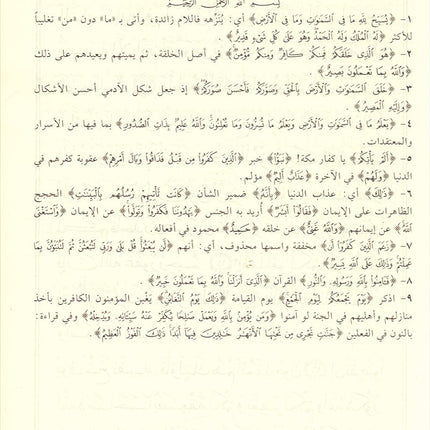 بسم الله الرحمن الرحيم
١ - ﴿يُسَبِّحُ لِلَّهِ مَا فِي السَّمَاوَاتِ وَمَا فِي الْأَرْضِ﴾ أي: يُنَزِّهه فاللام زائدة، وأتى بـ «ما» دون «من» تغليباً
للأكثر ﴿لَهُ الْمُلْكُ وَلَهُ الْحَمْدُ وَهُوَ عَلَى كُلِّ شَيْءٍ قَدِيرٌ﴾.
٢ - ﴿هُوَ الَّذِي خَلَقَكُمْ فَمِنكُمْ كَافِرٌ وَمِنكُم مُّؤْمِنٌ﴾ في أصل الخلقة، ثم يميتهم ويعيدهم على ذلك
﴿وَاللَّهُ بِمَا تَعْمَلُونَ بَصِيرٌ﴾.
٣ - ﴿خَلَقَ السَّمَاوَاتِ وَالْأَرْضَ بِالْحَقِّ وَصَوَّرَكُمْ فَأَحْسَنَ صُوَرَكُمْ﴾ إذ جعل شكل الآدمي أحسن الأشكال
﴿وَإِلَيْهِ الْمَصِيرُ﴾.
٤ - ﴿يَعْلَمُ مَا فِي السَّمَاوَاتِ وَالْأَرْضِ وَيَعْلَمُ مَا تُسِرُّونَ وَمَا تُعْلِنُونَ وَاللَّهُ عَلِيمٌ بِذَاتِ الصُّدُورِ﴾ بما فيها من الأسرار
والمعتقدات.
٥ - ﴿أَلَمْ يَأْتِكُمْ﴾ يا كفار مكة! ﴿نَبَؤُا﴾ خبر ﴿الَّذِينَ كَفَرُوا مِن قَبْلُ فَذَاقُوا وَبَالَ أَمْرِهِمْ﴾ عقوبة كفرهم في
الدنيا ﴿وَلَهُمْ﴾ في الآخرة ﴿عَذَابٌ أَلِيمٌ﴾ مؤلم.
٦ - ﴿ذَلِكَ﴾ أي: عذاب الدنيا ﴿بِأَنَّهُ﴾ ضمير الشأن ﴿كَانَت تَّأْتِيهِمْ رُسُلُهُم بِالْبَيِّنَاتِ﴾ الحجج
الظاهرات على الإيمان ﴿فَقَالُوا أَبَشَرٌ﴾ أريد به الجنس ﴿يَهْدُونَنَا فَكَفَرُوا وَتَوَلَّوا﴾ عن الإيمان ﴿وَّاسْتَغْنَى
اللَّهُ﴾ عن إيمانهم ﴿وَاللَّهُ غَنِيٌّ﴾ عن خلقه ﴿حَمِيدٌ﴾ محمود في أفعاله.
٧ - ﴿زَعَمَ الَّذِينَ كَفَرُوا أَن﴾ مخففة واسمها محذوف، أي: أنهم ﴿لَّن يُبْعَثُوا قُلْ بَلَى وَرَبِّي لَتُبْعَثُنَّ ثُمَّ لَتُنَبَّؤُنَّ بِمَا
عَمِلْتُمْ وَذَلِكَ عَلَى اللَّهِ يَسِيرٌ﴾.
٨ - ﴿فَآمِنُوا بِاللَّهِ وَرَسُولِهِ وَالنُّورِ﴾ القرآن ﴿الَّذِي أَنزَلْنَا وَاللَّهُ بِمَا تَعْمَلُونَ خَبِيرٌ﴾.
٩ - اذكر ﴿يَوْمَ يَجْمَعُكُمْ لِيَوْمِ الْجَمْعِ﴾ يوم القيامة ﴿ذَلِكَ يَوْمُ التَّغَابُنِ﴾ يَغْبِن المؤمنون الكافرين بأخذ
منازلهم وأهليهم في الجنة لو آمنوا ﴿وَمَن يُؤْمِن بِاللَّهِ وَيَعْمَلْ صَالِحًا يُكَفِّرْ عَنْهُ سَيِّئَاتِهِ وَيُدْخِلْهُ﴾ وفي قراءة:
بالنون في الفعلين ﴿جَنَّاتٍ تَجْرِي مِن تَحْتِهَا الْأَنْهَارُ خَالِدِينَ فِيهَا أَبَدًا ذَلِكَ الْفَوْزُ الْعَظِيمُ﴾.